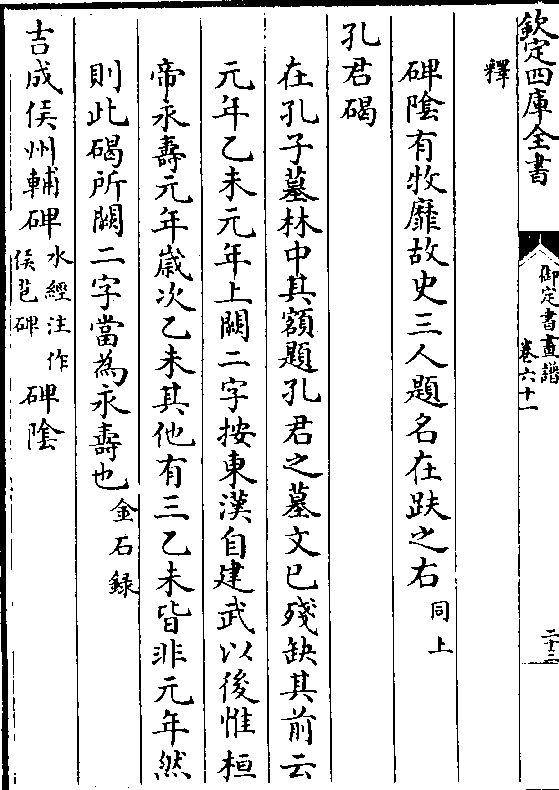 欽定四庫全書
御定書畫譜
卷六十一
二十三
釋
碑陰有牧靡故史三人題名在趺之右同上
孔君碣
在孔子墓林中其額題孔君之墓文已殘缺其前云
元年乙未元年上闕二字按東漢自建武以後惟桓
帝永壽元年歲次乙未其他有三乙未皆非元年然
則此碣所闕二字當為永壽也金石錄
吉成侯州輔碑水經注作侯邑碑碑陰